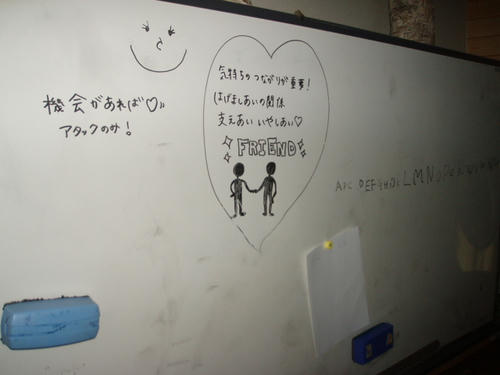 気持ちのつながりが重要!
はげましあいの関係
支えあい いやしあい♡
FRIEND
機会があれば♡
アタックのみ!
LMNOP